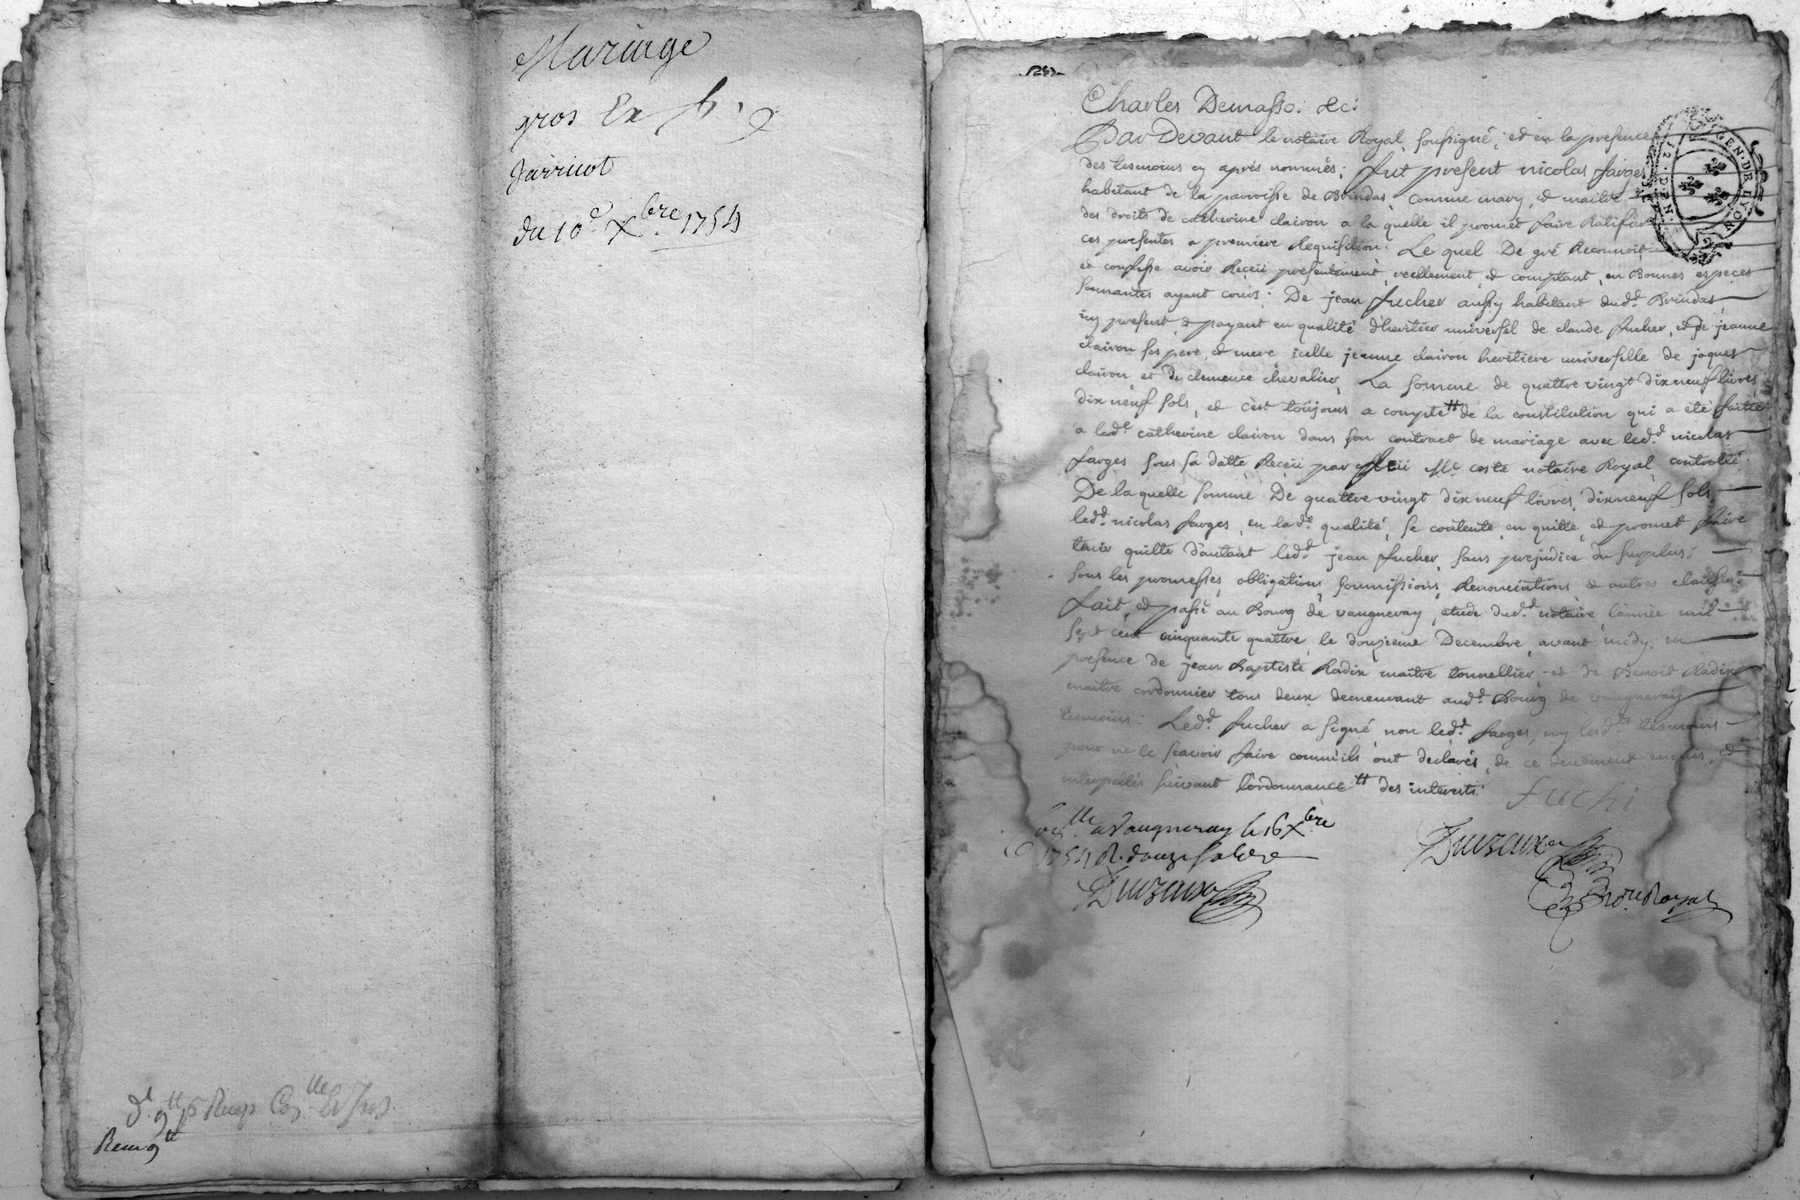 Mariage
gros Ex
Jarricot
du 10e Xbre 1754
Charles Demasso. &c:
Par Devant le notaire Royal soussigné, et en la presence
des tesmoins cy après nommés; fut present nicolas farges
habitant de la parroisse de Brindas comme mary, et maitre
des droits de catherine clairon a la quelle il promet faire Ratifier
ces presentes a premiere Requisition. Le quel De gré Reconnoit
et confesse avoir Receü presentement, reellement, et comptant, en Bonnes especes
sonnantes ayant cours: De jean fucher aussy habitant dud.t Brindas
icy present et payant en qualité d'heritier universel de claude fucher, et de jeanne
clairon ses pere, et mere, icelle jeanne clairon heritiere universelle de jaques
clairon et de clemence chevalier, La somme de quattre vingt dix neuf livres
dix neuf sols, et c'est toujours a compte # de la constitution qui a été faitte
a lad.e catherine clairon dans son contract de mariage avec led.t nicolas
farges sous sa datte Receü par M.e coste notaire Royal controllé
De la quelle somme De quattre vingt dix neuf livres dix neuf sols
led.t nicolas farges, en lad.e qualité, se contente, en quitte, et promet faire
tenir quitte d'autant led.t jean fucher, sans prejudice du surplus;
sous les promesses, obligations, soumissions, Renonciations, et autres clauses.
Fait, et passé au Bourg de vaugneray, etude dud.t notaire, l'année mil
sept cent cinquante quattre, le douzieme Decembre, avant midy en
presence de jean Baptiste Radix maitre tonnellier et de Benoit Radix
maitre cordonnier tous deux demeurant aud.t Bourg de vaugneray
tesmoins: Led.t fucher a signé, non led.t farges, ny lesd.ts tesmoins
pour ne le scavoir faire comm'ils ont declarés, de ce deuement enquis, et
interpellés suivant l'ordonnance # des interests
fuchi
a Vaugneray le 16 Xbre
1754 R. douze sols
N.re Royal
GEN. DE LYON